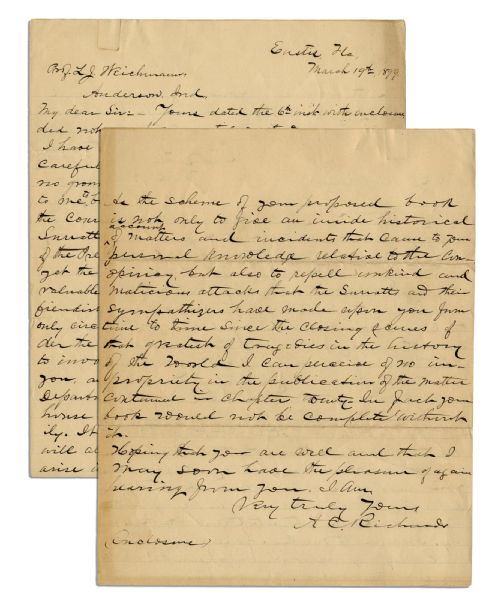 Eustis Fla,
March 19th, 1899
Prof. L. J. Weichmann,
Anderson, Ind.
My dear Sir:- Yours dated the 6th inst with enclosure
did not
I have
careful
no
to me,
the Cour
Surratt
of the Pre
yet the
valuable
fiendish
only circ
der the
to invo
you, a
Depart
house
ily. It
will al
arise
As the scheme of your proposed book
is not only to give an inside historical
account
of matters and incidents that came to your
personal knowledge relative to the Con-
spiricy, but also to repell unkind and
malicious attacks that the Surratts and their
sympathizers have made upon you from
time to time since the closing scenes of
that greatest of tragedies in the history
of the World I can perceive of no im-
propriety in the publication of the matter
contained in chapter twenty. In fact your
book would not be complete without
it.
Hoping that you are well and that I
may soon have the pleasure of again
hearing from you. I Am,
Very truly Yours
A. C. Richards
(enclosure)